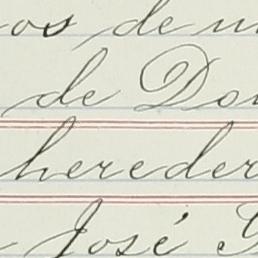 os de un
de Don
heredero
José